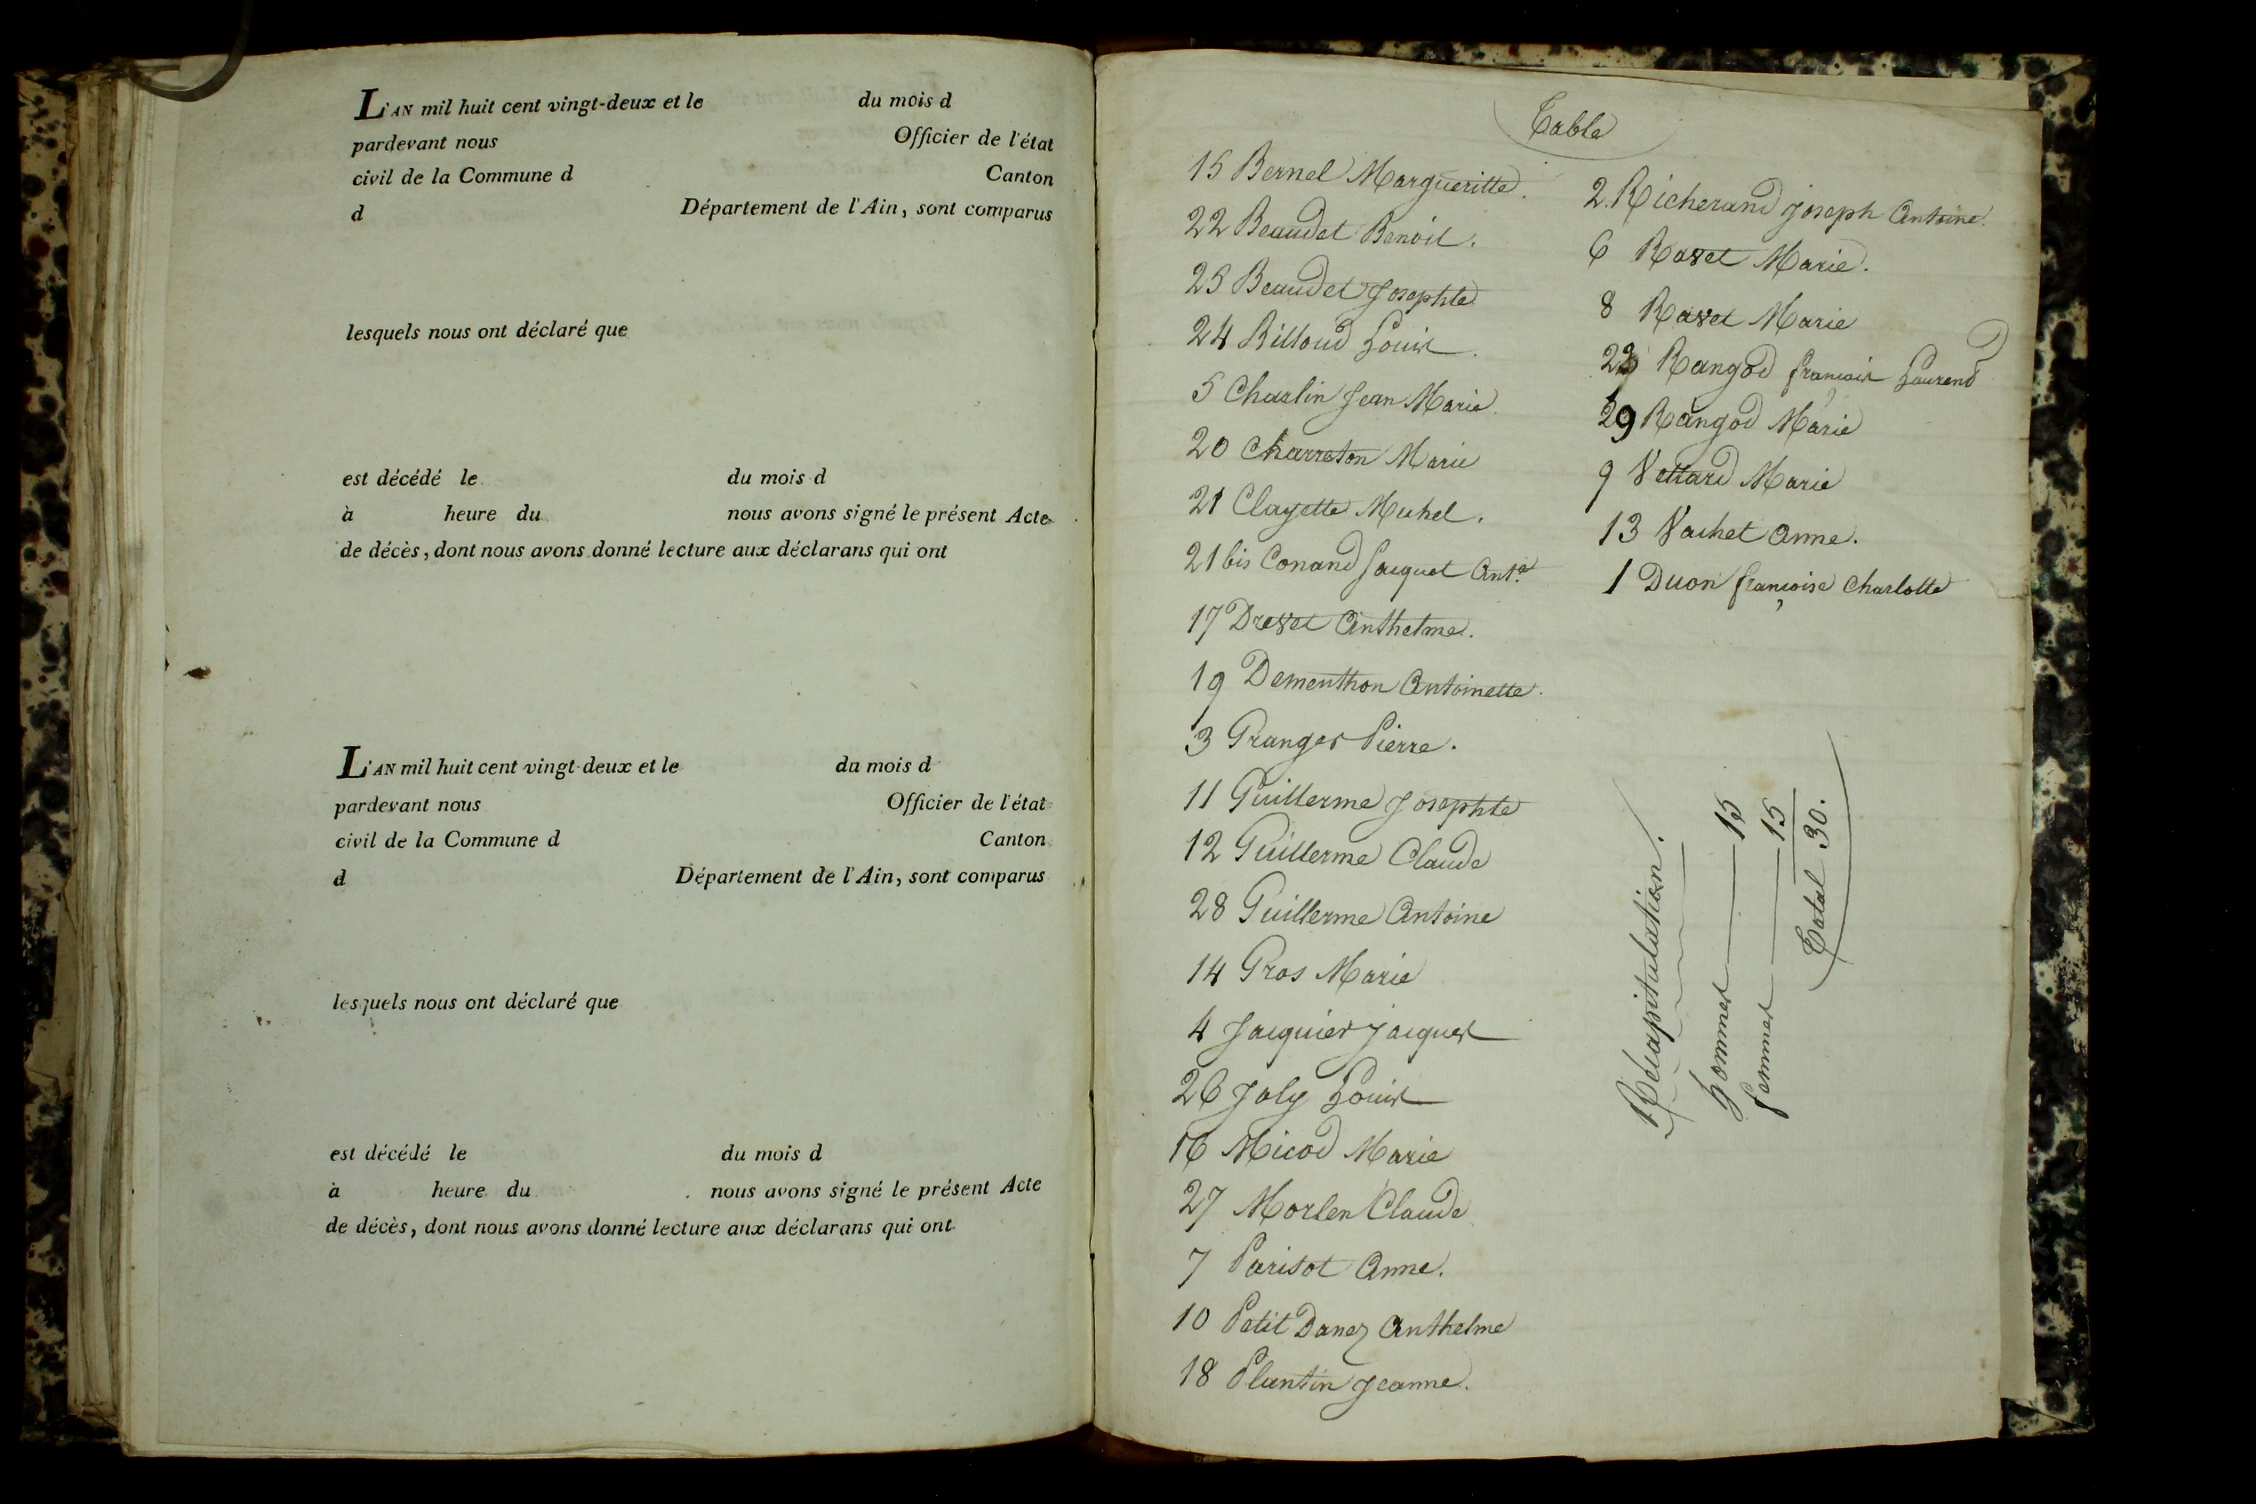 L'AN mil huit cent vingt-deux et le du mois d
pardevant nous Officier de l'état
civil de la Commune d Canton
d Département de l'Ain, sont comparus
lesquels nous ont déclaré que
est décédé le du mois d
à heure du nous avons signé le présent Acte
de décès, dont nous avons donné lecture aux déclarans qui ont
L'AN mil huit cent vingt-deux et le du mois d
pardevant nous Officier de l'état
civil de la Commune d Canton
d Département de l'Ain, sont comparus
lesquels nous ont déclaré que
est décédé le du mois d
à heure du nous avons signé le présent Acte
de décès, dont nous avons donné lecture aux déclarans qui ont
Table
15 Bernel Margueritte.
22 Beaudet Benoit.
25 Beaudet Josephte
24 Billoud Louis.
5 Charlin Jean Marie
20 Charreton Marie
21 Clayette Michel.
21 bis Conand Jacquet Ant.e
17 Drevet Anthelme.
19 Dementhon Antoinette.
3 Granger Pierre.
11 Guillerme Josephte
12 Guillerme Claude
28 Guillerme Antoine
14 Gros Marie
4 Jacquier Jacques
26 Joly Louis
16 Micod Marie
27 Morlen Claude
7 Parisot Anne.
10 Petit Danez Anthelme
18 Plantin Jeanne.
2. Richerand Joseph Antoine.
6 Ravet Marie.
8 Ravet Marie
23 Rangod françois Laurend
29 Rangod Marie
9 Vettard Marie
13 Vachet Anne.
1 Duon françoise Charlotte
Récapitulation.
hommes 15
femmes 15
Total 30.